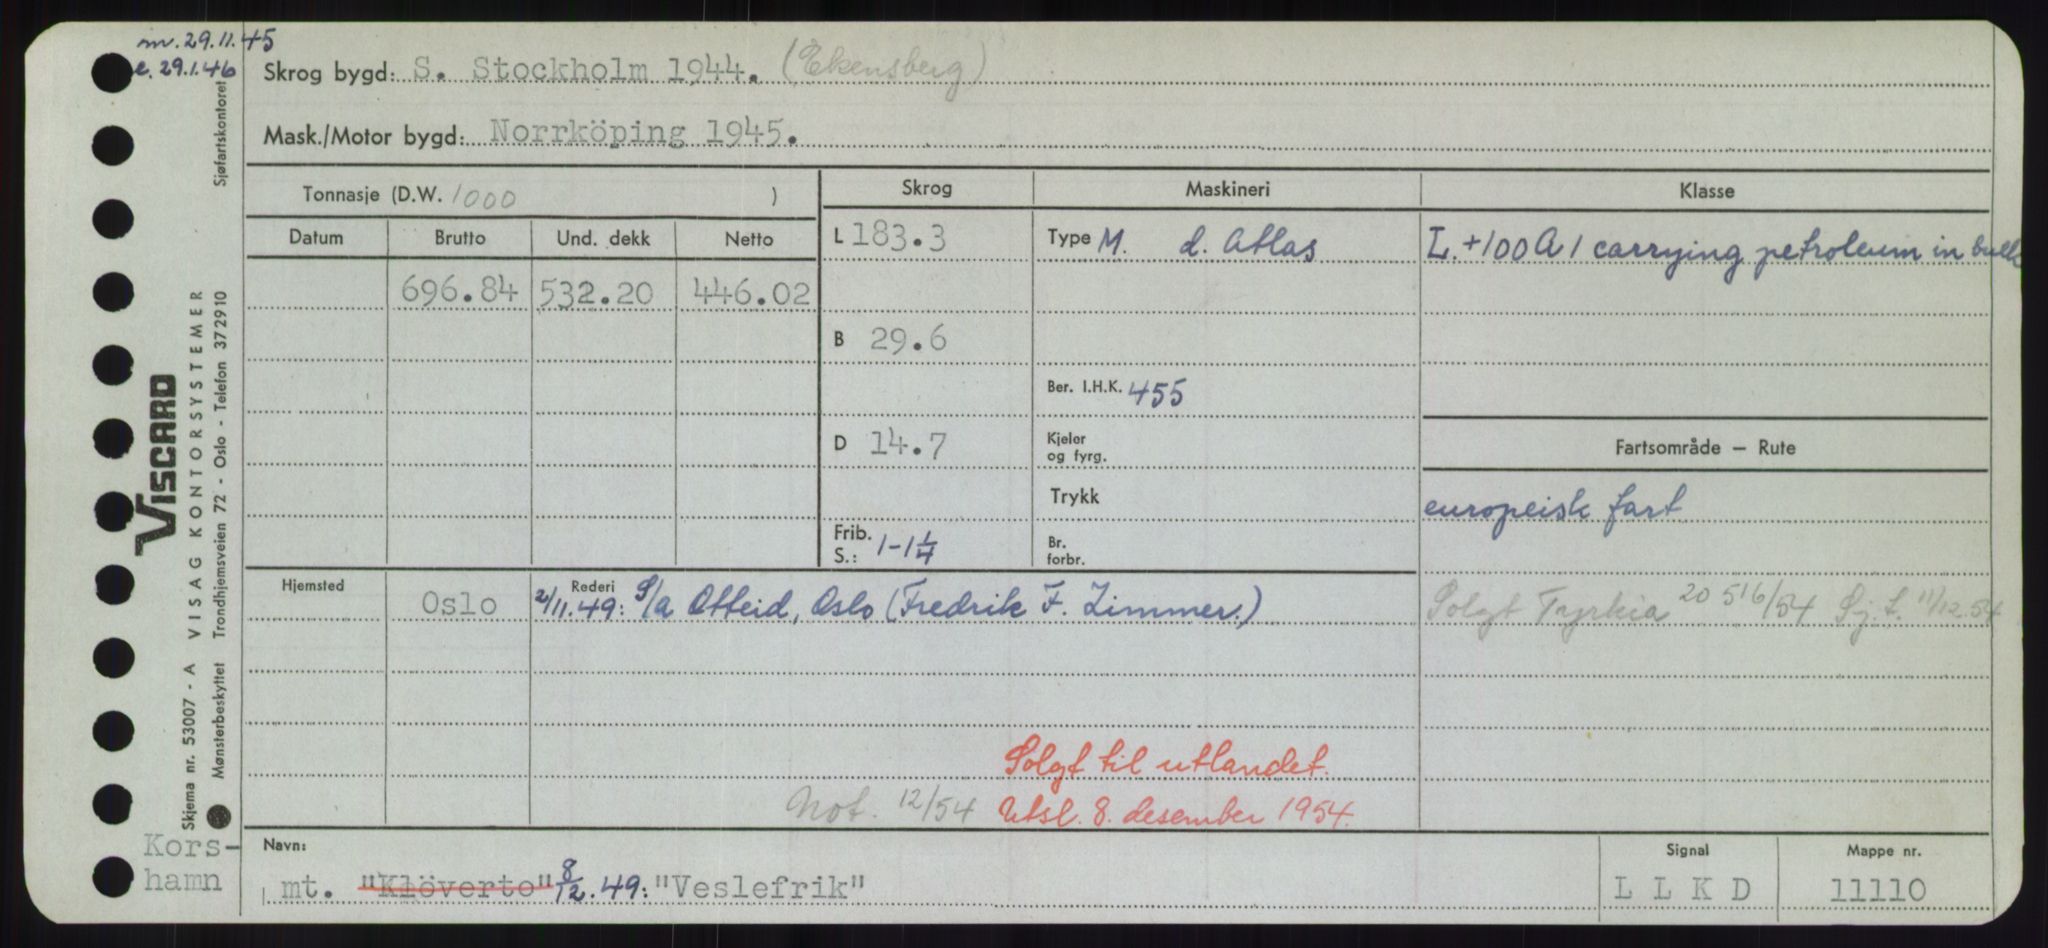 m. 29.11.45
e. 29.1.46
Skrog bygd: S. Stockholm 1944. (Ekensberg)
Mask./Motor bygd: Norrköping 1945.
Tonnasje (D.W. 1000 )
Skrog
Maskineri
Klasse
Datum
Brutto
Und. dekk
Netto
L 183.3
Type M. d. Atlas
L. +100A1 carrying petroleum in bulk
696.84
532.20
446.02
B 29.6
Ber. I.H.K. 455
D 14.7
Kjeler
og fyrg.
Fartsområde – Rute
Trykk
europeisk fart
Frib.
S.: 1-1 1/4
Br.
forbr.
Hjemsted
Oslo
Rederi
2/11.49: S/a Otteid, Oslo (Fredrik F. Zimmer.)
Solgt Tyrkia 20 516/54 Sj.t. 11/12.54
Solgt til utlandet.
Not. 12/54 Utsl. 8. desember 1954.
Kors-
hamn
Navn:
mt. "Klöverto" 8/12.49: "Veslefrik"
Signal
LLKD
Mappe nr.
11110
Viscard
VISAG KONTORSYSTEMER
Trondhjemsveien 72 - Oslo - Telefon 372910
Skjema nr. 53007 - A
Mønsterbeskyttet
Sjøfartskontoret